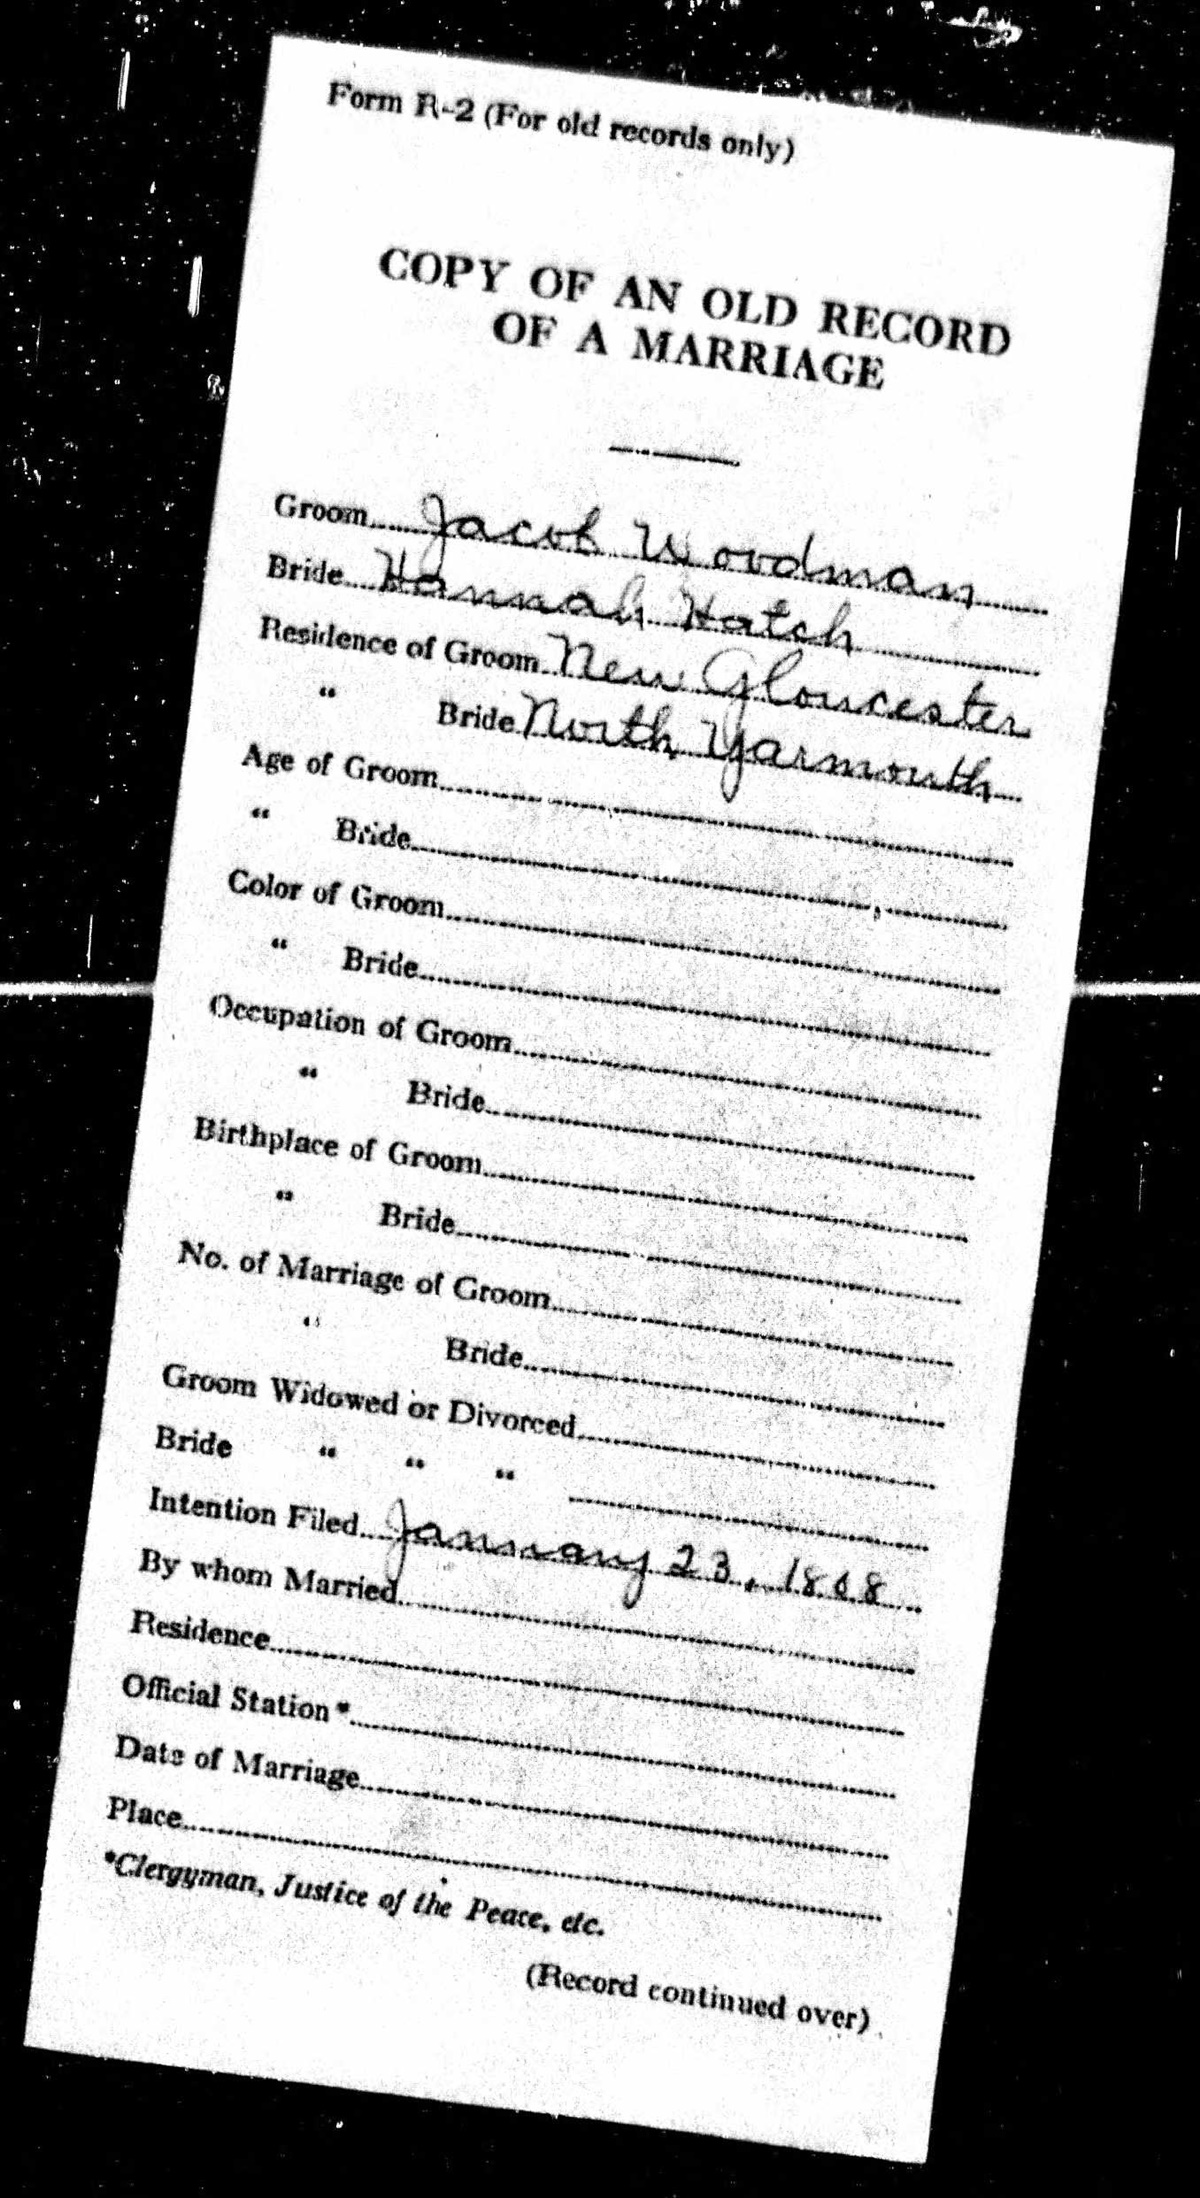 Form R-2 (For old records only)
COPY OF AN OLD RECORD
OF A MARRIAGE
Groom Jacob Woodman
Bride Hannah Hatch
Residence of Groom New Gloucester
" Bride North Yarmouth
Age of Groom
" Bride
Color of Groom
" Bride
Occupation of Groom
" Bride
Birthplace of Groom
" Bride
No. of Marriage of Groom
" Bride
Groom Widowed or Divorced
Bride " " "
Intention Filed January 23, 1808
By whom Married
Residence
Official Station*
Date of Marriage
Place
*Clergyman, Justice of the Peace, etc.
(Record continued over)